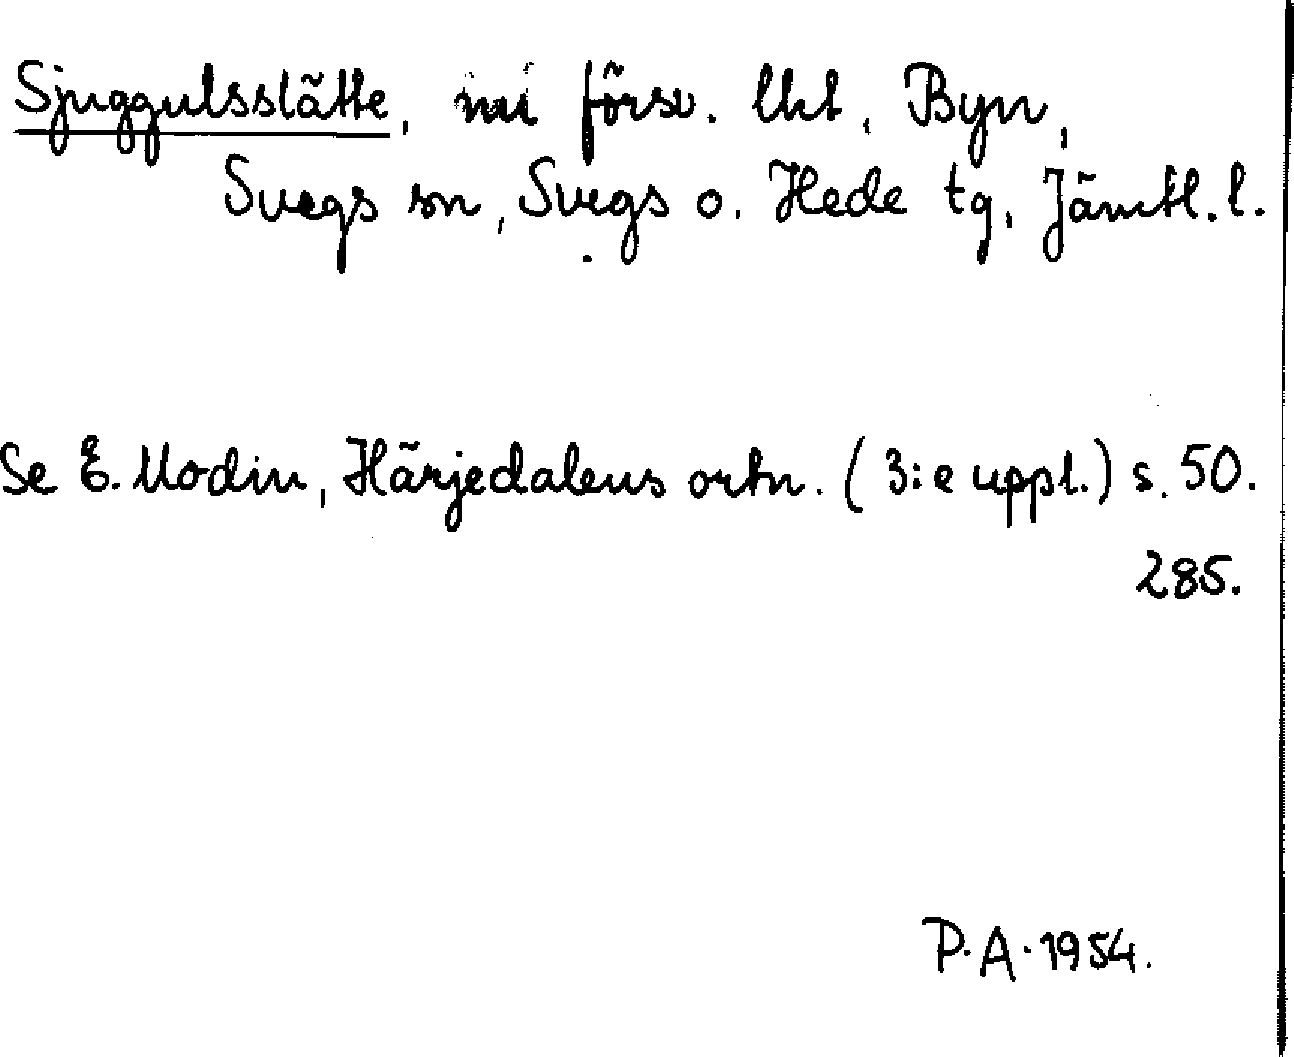 Sjuggulsslätte, nu försv. lht, Byn,
Svegs sn, Svegs o. Hede tg, Jämtl. l.
Se E. Modin, Härjedalens ortn. (3:e uppl.) s. 50.
285.
P.A. 1954.